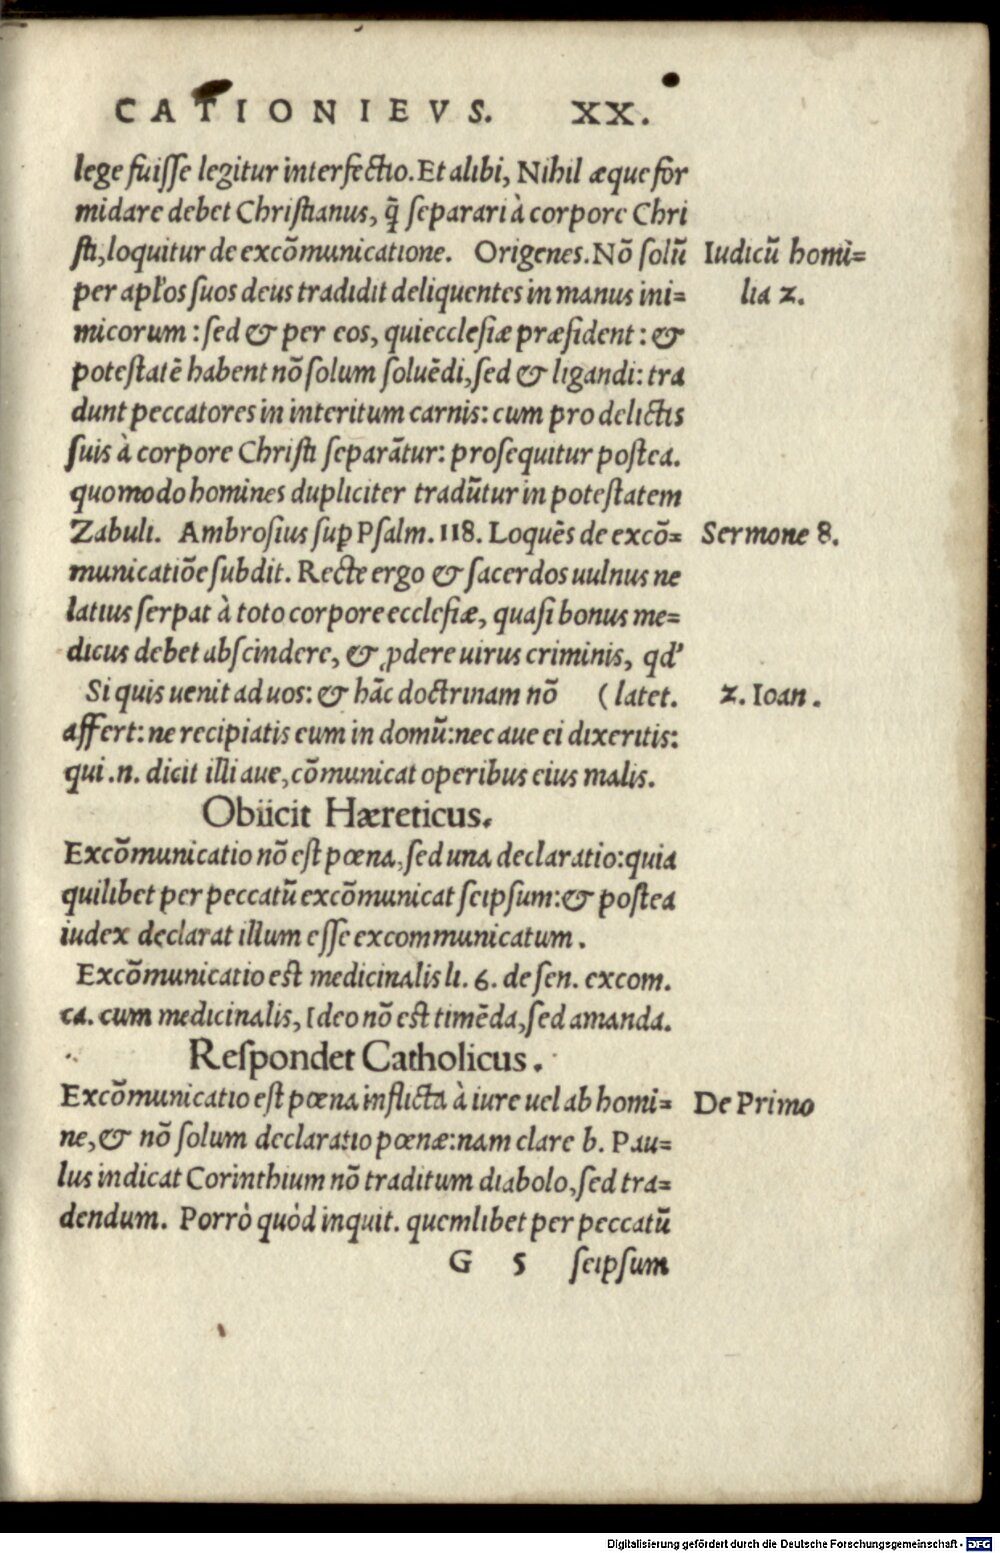 CATIONIEVS. XX.
lege fuisse legitur interfectio. Et alibi, Nihil æque for
midare debet Christianus, q̃ separari à corpore Chri
sti, loquitur de excõmunicatione. Origenes. Nõ solũ Iudicũ homi=
per apl'os suos deus tradidit deliquentes in manus ini= lia 2.
micorum : sed & per eos, qui ecclesiæ præsident : &
potestatē habent nõ solum soluēdi, sed & ligandi: tra
dunt peccatores in interitum carnis: cum pro delictis
suis à corpore Christi separãtur: prosequitur postea.
quomodo homines dupliciter tradũtur in potestatem
Zabuli. Ambrosius suꝑ Psalm. 118. Loquēs de excõ= Sermone 8.
municatiõe subdit. Recte ergo & sacerdos uulnus ne
latius serpat à toto corpore ecclesiæ, quasi bonus me=
dicus debet abscindere, & ꝓdere uirus criminis, qd'
Si quis uenit ad uos: & hãc doctrinam nõ (latet. 2. Ioan.
affert: ne recipiatis eum in domũ: nec aue ei dixeritis:
qui .n. dicit illi aue, cõmunicat operibus eius malis.
Obiicit Hæreticus.
Excõmunicatio nõ est pœna, sed una declaratio: quia
quilibet per peccatũ excõmunicat seipsum: & postea
iudex declarat illum esse excommunicatum.
Excõmunicatio est medicinalis li. 6. de sen. excom.
ca. cum medicinalis, Ideo nõ est timēda, sed amanda.
Respondet Catholicus.
Excõmunicatio est pœna inflicta à iure uel ab homi= De Primo
ne, & nõ solum declaratio pœnæ: nam clare b. Pau=
lus indicat Corinthium nõ traditum diabolo, sed tra=
dendum. Porrò quòd inquit. quemlibet per peccatũ
G 5 seipsum
Digitalisierung gefördert durch die Deutsche Forschungsgemeinschaft - DFG